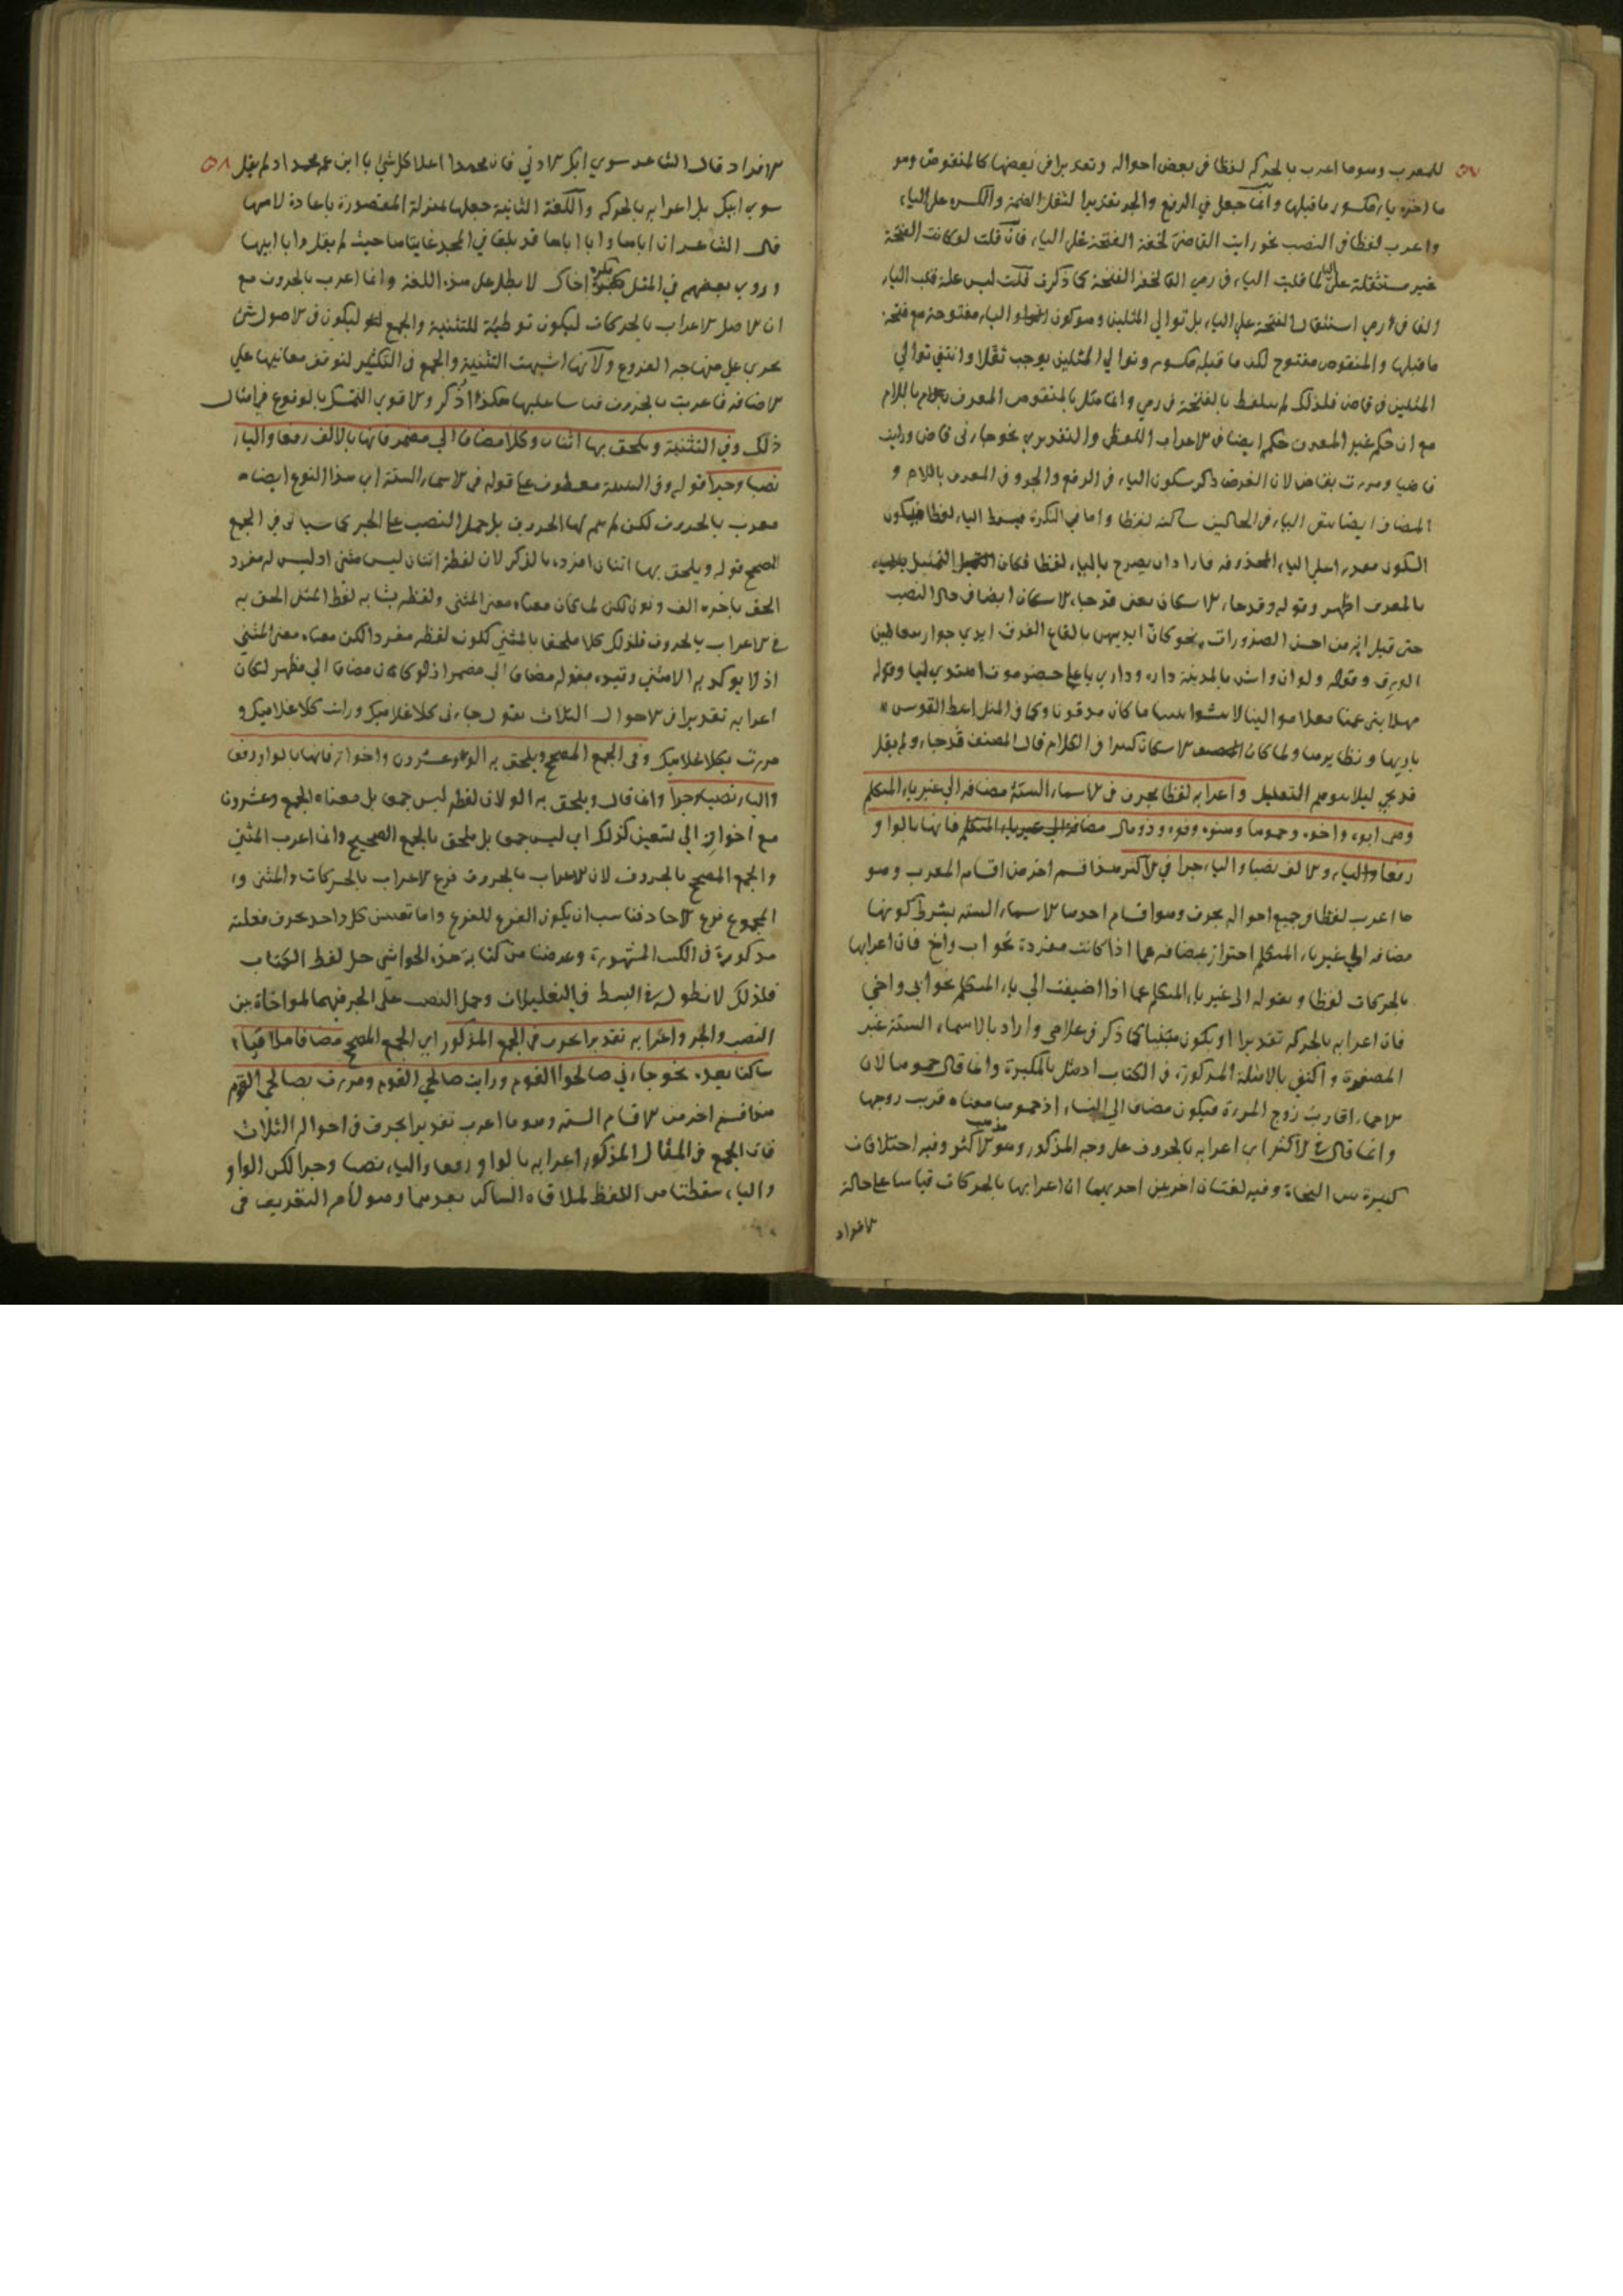 ٥٧
للمعرب وهو ما اعرب بالحركة لفظا في بعض احواله وتقديرا في بعضها كالمنقوص وهو
ما اخره ياء مكسور ما قبلها وانما جعل في الرفع والجر تقديرا لثقل الضمة والكسرة على الياء
واعرب لفظا في النصب نحو رايت القاضي لخفة الفتحة على الياء فان قلت لو كانت الفتحة
غير مستثقلة على الياء لما قلبت الياء في رمي الفا لخفة الفتحة كما ذكرت قلت ليس علة قلب الياء
الفا في رمي استثقال الفتحة على الياء بل توالي المثلين وهو كون الياء مفتوحة مع فتحة
ما قبلها والمنقوص مفتوح لكن ما قبله مكسور وتوالي المثلين يوجب ثقلا وانتفي توالي
المثلين في قاض فلذلك لم يتلفظ بالفتحة في رمي وانما مثل بالمنقوص المعرف باللام
مع ان حكم غير المعرف حكم ايضا في الاعراب اللفظي والتقديري نحو جاءني قاض ورايت
قاضيا ومررت بقاض لان الغرض ذكر سكون الياء في الرفع والجر وفي المعرف باللام و
المضاف ايضا يبقى الياء في الحالين ساكنة لفظا واما في النكرة فيسقط الياء لفظا فيكون
السكون مقدرا على الياء المحذوفة فاراد ان يصرح بالياء لفظا فكان التمثيل
بالمعرف اظهر وقوله وقد جاء الاسكان يعني قد جاء الاسكان ايضا في حال النصب
حتى قيل انه من احسن الضرورات نحو كان ايديهن بالقاع القرق ايدي جوار يتعاطين
الورق وقوله ولو ان واش باليمامة داره وداري باعلى حضرموت اهتدى ليا وقوله
مهلا بني عمنا مهلا موالينا لا تنبشوا بيننا ما كان مدفونا وكما في المثل اعط القوس
باريها ونظايرها ولما كان الاسكان كثيرا في الكلام قال المصنف قد جاء ولم يقل
قد يجي ليلا يتوهم التقليل واعرابه لفظا بحرف في الاسماء الستة مضافة الي غير ياء المتكلم
وهي ابوه واخوه وحموها وهنوه وفوه وذو مال مضافة الي غير ياء المتكلم فانها بالواو
رفعا والالف نصبا والياء جرا في الاكثر هذا قسم اخر من اقسام المعرب وهو
ما اعرب لفظا في جميع احواله بحرف وهو اقسام احدها الاسماء الستة بشرط كونها
مضافة الي غير ياء المتكلم احترز بمضافة عما اذا كانت مفردة نحو اب واخ فان اعرابها
بالحركات لفظا وبقوله الى غير ياء المتكلم عما اذا اضيفت الي ياء المتكلم نحو ابي واخي
فان اعرابه بالحركة تقديرا او يكون مبنيا كما ذكر في غلامي واراد بالاسماء الستة غير
المصغرة واكتفي بالامثلة المذكورة في الكتاب اذ مثل بالمكبرة وانما قال حموها لان
الاحماء اقارب زوج المرءة فيكون مضافا الي النساء اذ حموها معناه قريب زوجها
وانما قال في الاكثر اي اعرابه بالحروف على وجه المذكور وهو مذهب الاكثر وفيه اختلافات
كثيرة بين النحاة وفيه لغتان اخريين احديهما ان اعرابها بالحركات قياسا على حالة
الافراد
٥٨
الافراد قال الشاعر سوى ابك الادني فان محمدا اعلا كل شئ يا ابن عم محمد اذ لم يقل
سوى ابيك بل اعرابه بالحركة واللغة الثانية جعلها بمنزلة المقصورة باعادة لامها
قال الشاعر ان اباها وابا اباها قد بلغا في المجد غايتاها حيث لم يقل وابا ابيها
وروى بعضهم في المثل مكره اخاك لا بطل على هذه اللغة وانما اعرب بالحروف مع
ان الاصل الاعراب بالحركات ليكون توطئة للتثنية والجمع ليكون في الاصول شئ
يجري على منهاجه الفروع ولانها اشبهت التثنية والجمع في التكثير لتوقف معانيها على
الاضافة فاعربت بالحروف قياسا عليها هكذا ذكر والاقوى التمسك بالوقوع في امثال
ذلك وفي التثنية ويلحق بها اثنان وكلا مضافا الي مضمر فانها بالالف رفعا والياء
نصبا وجرا قوله وفي التثنية معطوف على قوله في الاسماء الستة اي هذا النوع ايضا
معرب بالحروف لكن لم يتم لها الحروف بل حمل النصب على الجر كما سياتى في الجمع
الصحيح قوله ويلحق بها اثنان افرده بالذكر لان لفظة اثنان ليس مثنى اذ ليس له مفرد
الحق باخره الف ونون لكن لما كان معناه معنى المثنى ولفظه يشابه لفظ المثنى الحق به
في الاعراب بالحروف فلذلك كلا ملحق بالمثني لكون لفظه مفردا لكن معناه معنى المثني
اذ لا يوكد به الا مثني وقيده بقوله مضاف الي مضمر اذ لو كان مضافا الي مظهر لكان
اعرابه تقديرا في الاحوال الثلاث تقول جاءني كلا غلاميك ورايت كلا غلاميك و
مررت بكلا غلاميك وفي الجمع المصحح ويلحق به الو وعشرون واخواته فانها بالواو رفعا
والياء نصبا وجرا وانما قال ويلحق به الو لان لفظه ليس جمعا بل معناه الجمع وعشرون
مع اخواته الي تسعين كذلك اي ليس جمعا بل ملحق بالجمع الصحيح وانما اعرب المثني
والجمع المصحح بالحروف لان الاعراب بالحروف فرع الاعراب بالحركات والمثنى و
المجموع فرع الاحاد فناسب ان يكون الفرع للفرع واما تعيين كل واحد بحرف فعلته
مذكورة في الكتب المشهورة وغرضنا من كتابة هذه الحواشي حل لفظ الكتاب
فلذلك لا نطول في البسط في التعليلات وحمل النصب على الجر فيهما لمواخاة بين
النصب والجر واعرابه تقديرا بحرف في الجمع المذكور اي الجمع المصحح مضافا ملاقيا
ساكنا بعده نحو جاءني صالحوا القوم ورايت صالحي القوم ومررت بصالحي القوم
هذا قسم اخر من الاقسام الستة وهو ما اعرب تقديرا بحرف في احواله الثلاث
فان الجمع في المثال المذكور اعرابه بالواو رفعا والياء نصبا وجرا لكن الواو
والياء سقطتا من اللفظ لملاقاة الساكن بعدهما وهو لام التعريف في